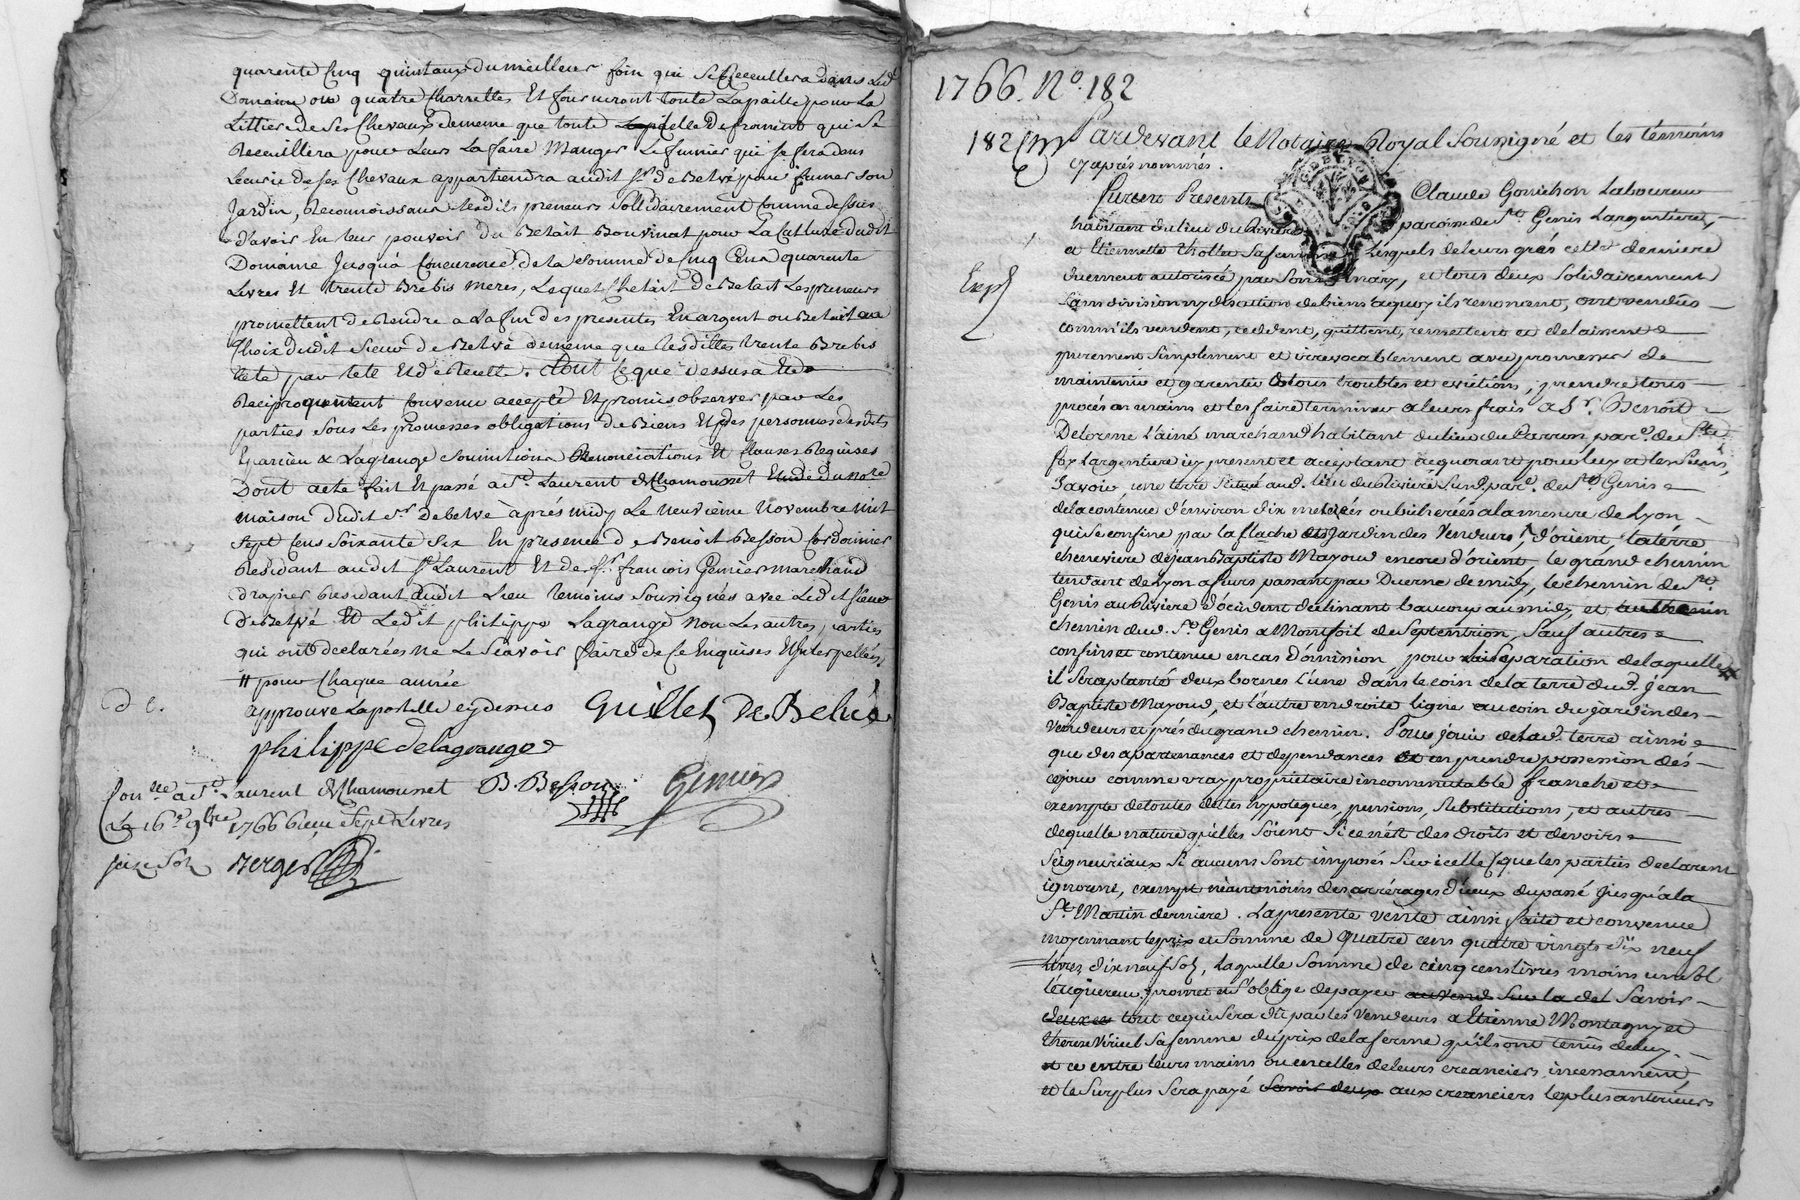 quarente Cinq quintaux du meilleur foin qui se Receuillera dans Led.
Domaine ou quatre Charrettes Et fourniront toute La paille pour La
Littiere de ses Chevaux de meme que toute celle de froment qui se
Receuillera pour Leur La faire Manger Le fumier qui se fera dans
Lecurie de ses Chevaux appartiendra audit Sr. de Belvé pour fumer son
Jardin, Reconnoissans Lesdits preneurs sollidairement Comme dessus
d'avoir En leur pouvoir du Betait Bouvinat pour La Culture dudit
Domaine Jusqu'à Concurence de la somme de Cinq Cens quarente
Livres Et trente Brebis meres, Lequel Chetait de Betait Les preneurs
promettent de Rendre a La fin des presentes En argent ou Betait au
Choix dudit sieur de Belvé de meme que Lesdittes trente Brebis
tete par tete Et de Recette. Tout Ce que dessus a Eté
Reciproquement Convenu accepté Et promis observer par Les
parties sous Les Promesses obligations de Biens Et des personnes desdits
& Lagrange soumitions Renonciations Et Clauses Requises
Dont acte fait Et passé a St. Laurent de Chamousset Etude du nore
maison dudit Sr. De belvé après midy Le neuvieme Novembre mil
sept Cens soixante six En presence de Benoit Besson Cordonnier
Residant audit St. Laurent Et de Sr. françois Genier marchand
drapier Residant audit Lieu temoins soussignés avec Ledit sieur
de Belvé Et Ledit philippe Lagrange non Les autres parties
qui ont declarées ne Le sçavoir faire de Ce Enquises Et Interpellés
# pour Chaque année
approuvé La postille cy dessus Guillet De Belvé
philippe delagrange
Con.lle a St. Laurent de Chamousset B. Besson Genier
Le 16e. 9bre 1766 Reçu sept Livres
seize sols Berger
1766. No. 182
182 Pardevant le Notaire Royal Soussigné et les témoins
cy après nommés.
Furent Presents Claude Gonichon Laboureur
habitant du lieu du Riviere paroisse de St. Genis Largentiere,
et Etiennette Thollet Sa femme Lesquels de leurs grés cette derniere
düement autorisée par Son mary, et tous deux Solidairement
Sans division ny discution de biens a quoy ils renoncent, ont vendus
comm'ils vendent, ceddent, quittent, remettent et delaissent
purement Simplement et irrevocablement avec promesse de
maintenir et garentir de tous troubles et evictions, prendre tous
procés en mains et les faire terminer a leurs frais a Sr. Benoit
Delorme l'ainé marchand habitant du lieu du Parron par.e de Ste.
foy Largentiere icy present et acceptant acquerant pour luy et les Siens
Savoir, une terre Située aud. lieu du Riviere Susd. par.e de St. Genis
de la contenue d'environ dix metérées ou bicherées a la mesure de Lyon
qui se confine par la flache et Jardin des Vendeurs d'orient, la terre
cheneviere de Jean Baptiste Mayoud encore d'orient, le grand chemin
tendant de Lyon a feurs passant par Duerne de midy, le chemin de St.
Genis au Riviere d'occident declinant beaucoup au midy, et au chemin
chemin dud. St. Genis a Montfort de Septentrion, Sauf autres
confins et contenue en cas d'omission, pour la Separation de laquelle
il Sera planté deux bornes l'une dans le coin de la terre dud. Jean
Baptiste Mayoud, et l'autre en droite ligne au coin du Jardin des
Vendeurs et prés du grand chemin. Pour jouir de lad. terre ainsi
que des apartenances et dependances et en prendre possession dés
ce jour comme vray proprietaire incommutable franche et
exempte de toutes dettes hypoteques, pensions, Substitutions, et autres
de quelle nature qu'elles Soient Si ce n'est des droits et devoirs
Seigneuriaux Si aucuns Sont imposés Sur icelle (que les parties declarent
ignorent, exempt néantmoins des arrérages d'iceux du passé jusqu'a la
St. Martin derniere. La presente vente ainsi faite et convenue
moyennant le prix et Somme de Quatre cens quatre vingts dix neuf
Livres dix neuf Sols, laquelle Somme de cinq cens livres moins un Sol
l'acquereur promet et S'oblige de payer aux vend. Sur la det Savoir
deux et tout ce qui Sera dû par les Vendeurs a Etienne Montagny et
Therese Véricel Sa femme du prix de la ferme qu'ils ont tenus de luy.
et ce entre leurs mains ou en celles de leurs creanciers incessament,
et le Surplus Sera payé Savoir deux aux creanciers les plus anterieurs